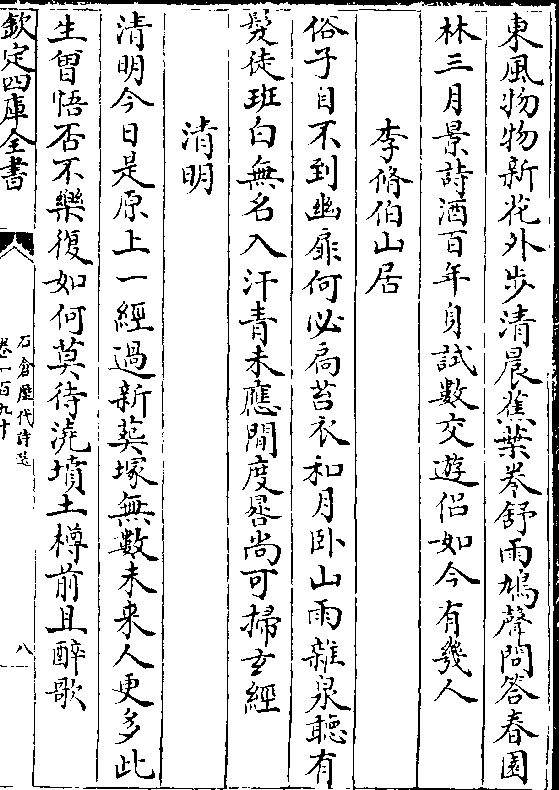 東風物物新花外步清晨蕉葉巻舒雨鳩聲問答春園
林三月景詩酒百年身試數交遊侣如今有幾人
李脩伯山居
俗子自不到幽扉何必扃苔衣和月卧山雨雜泉聽有
髮徒班白無名入汗青未應閒度晷尚可掃玄經
清明
清明今日是原上一經過新𦵏塚無數未来人更多此
生曾悟否不樂復如何莫待澆墳土樽前且醉歌
欽定四庫全書
石倉歷代詩選
卷一百九十
八